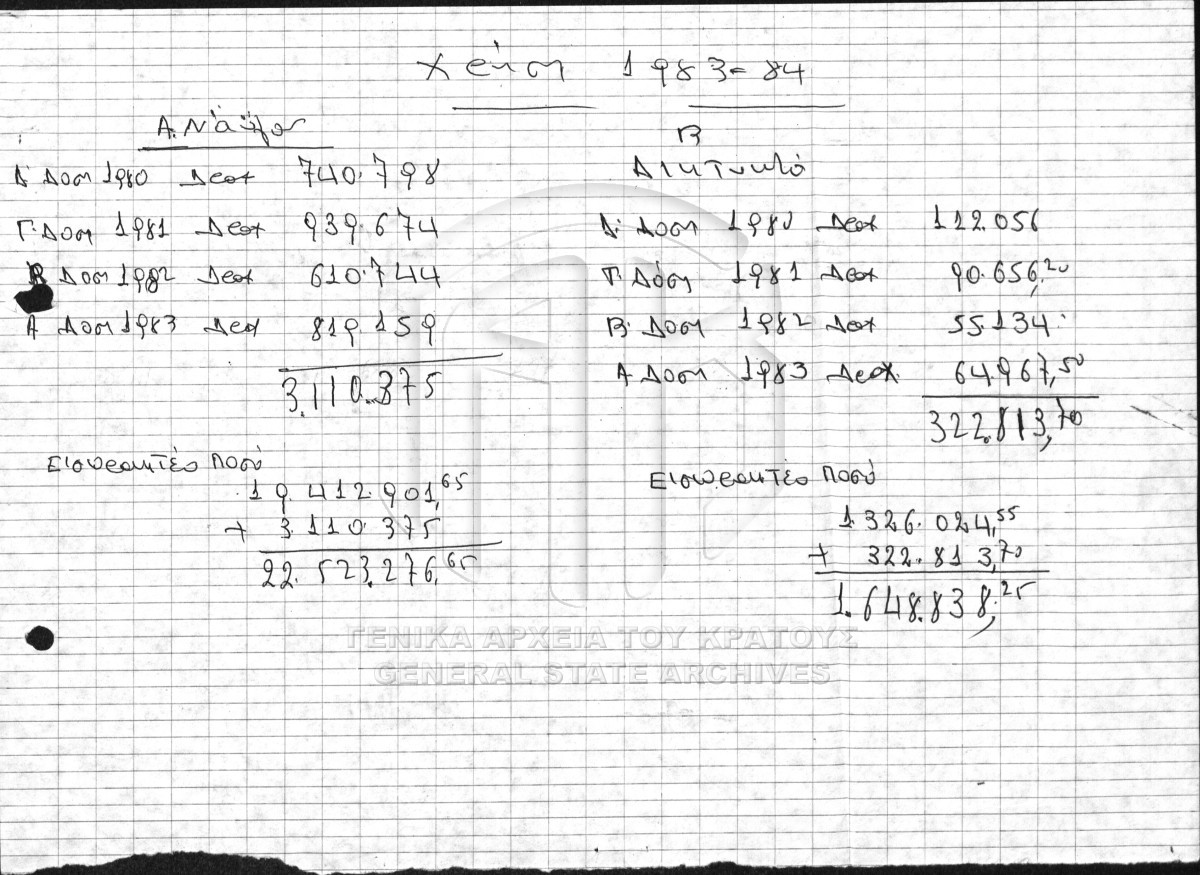 Χρήση 1983-84
Α. Νάξος
Δ' Δοση 1980 Δραχ 740.798
Γ' Δοση 1981 Δραχ 939.674
Β Δοση 1982 Δραχ 610.744
Α Δοση 1983 Δραχ 819.159
3.110.375
Εισπρακτέο Ποσό
19.412.901,65
+ 3.110.375
22.523.276,65
Β
Δικτυωτό
Δ' Δοση 1980 Δραχ 112.056
Γ' Δόση 1981 Δραχ 90.656,20
Β' Δοση 1982 Δραχ 55.134
Α Δοση 1983 Δραχ. 64.967,50
322.813,70
Εισπρακτέο Ποσό
1.326.024,55
+ 322.813,70
1.648.838,25
ΓΕΝΙΚΑ ΑΡΧΕΙΑ ΤΟΥ ΚΡΑΤΟΥΣ
GENERAL STATE ARCHIVES